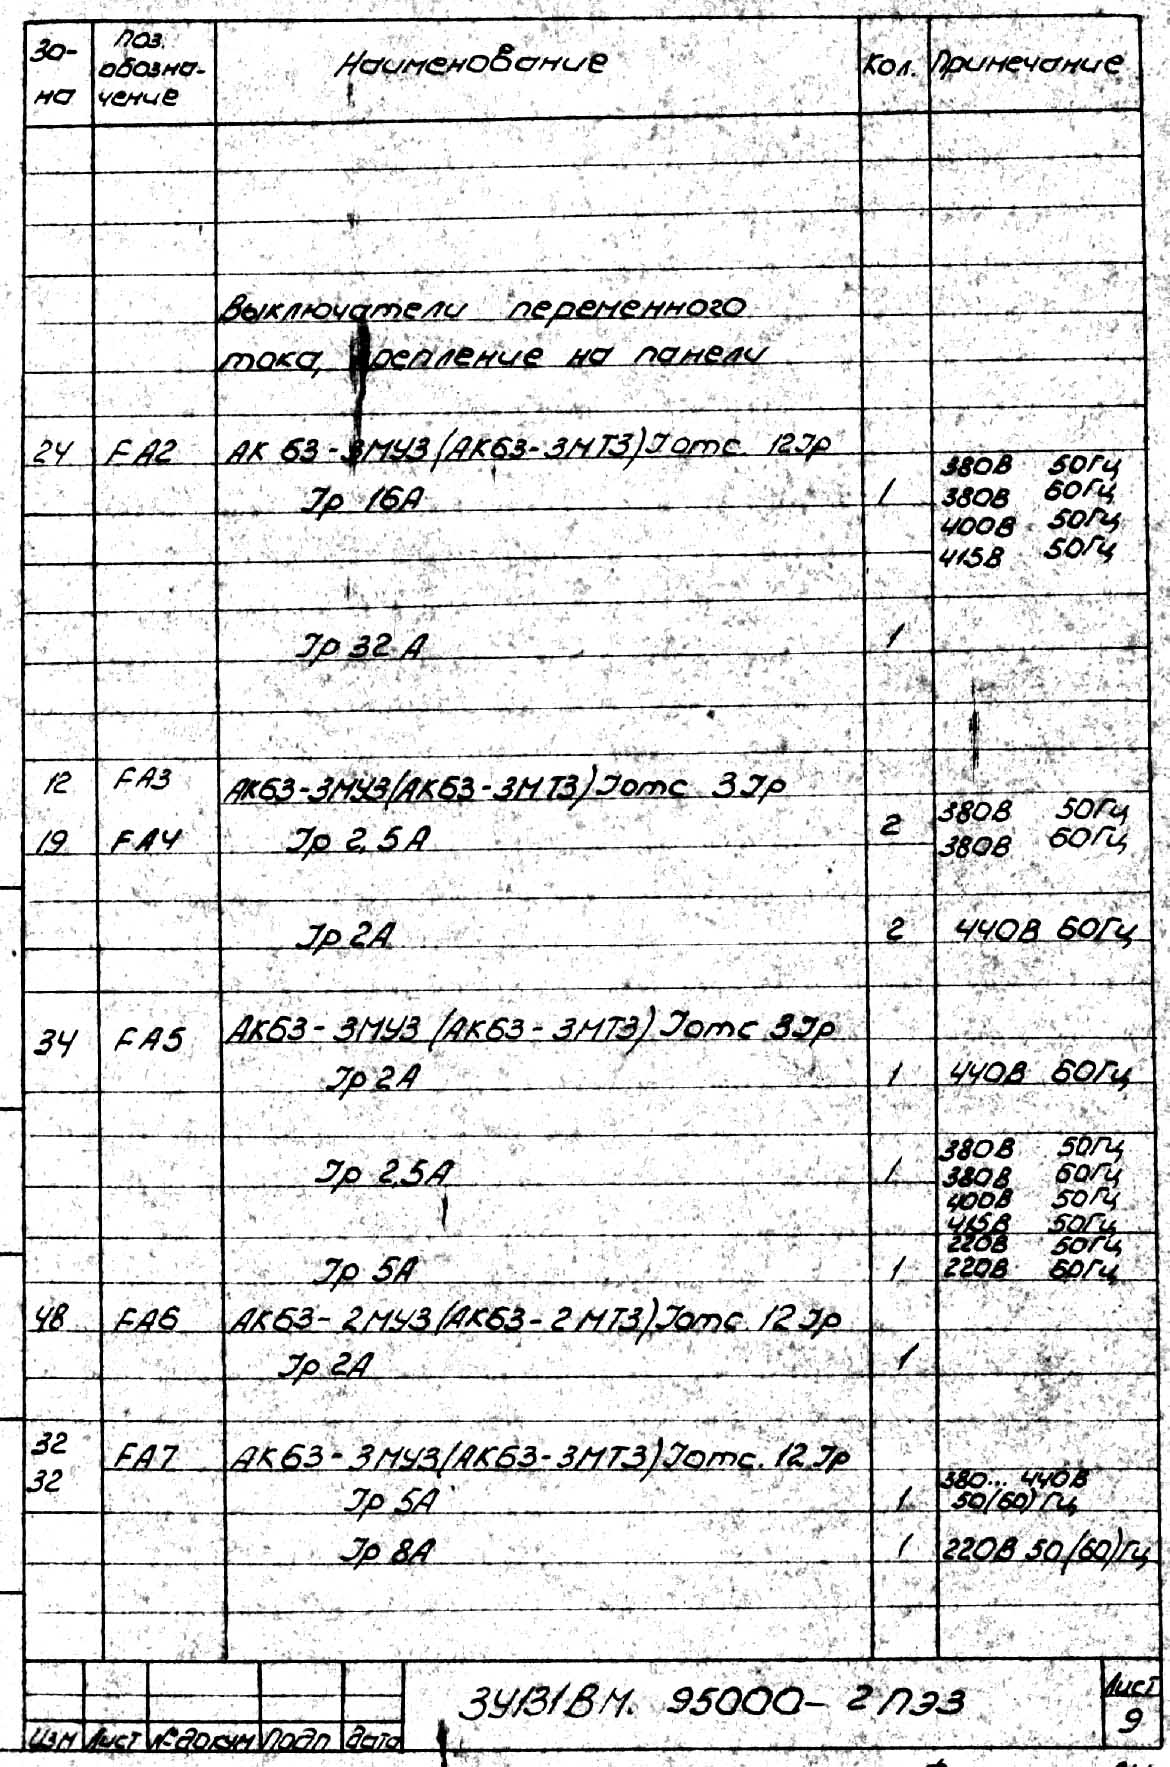 Зо-
на
Поз.
обозна-
чение
Наименование
Кол.
Примечание
Выключатели переменного
тока, крепление на панели
24 FA2 АК 63-3МУ3 (АК63-3МТ3) Iотс. 12Iр
380В 50Гц
Iр 16А 1 380В 60Гц
400В 50Гц
415В 50Гц
Iр 32 А 1
12 FA3 АК63-3МУ3 (АК63-3МТ3) Iотс 3 Iр
380В 50Гц
19 FA4 Iр 2,5А 2 380В 60Гц
Iр 2А 2 440В 60Гц
34 FA5 АК63-3МУ3 (АК63-3МТ3) Iотс 3Iр
Iр 2А 1 440В 60Гц
380В 50Гц
Iр 2,5А 1 380В 60Гц
400В 50Гц
415В 50Гц
220В 50Гц
Iр 5А 1 220В 60Гц
48 FA6 АК63-2МУ3 (АК63-2МТ3) Iотс. 12 Iр
Iр 2А 1
32 FA7 АК63-3МУ3 (АК63-3МТ3) Iотс. 12 Iр
32 380... 440В
Iр 5А 1 50(60) Гц
Iр 8А 1 220В 50(60)Гц
3У131ВМ. 95000-2ПЭ3
Лист
9
Изм Лист № докум Подп Дата